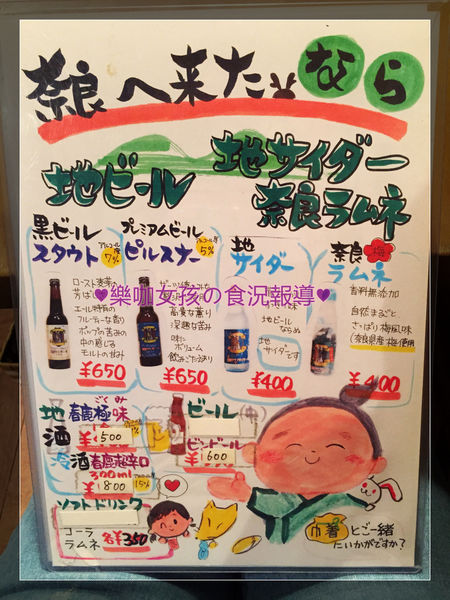 奈良へ来たなら
地ビール
地サイダー
奈良ラムネ
黒ビール
スタウト
アルコール度
7%
ロースト麦芽
芳ば
エール特有の
フルーティーな香り
ホップの苦みの
中の感じる
モルトの甘み
¥650
プレミアムビール
ピルスナー
アルコール度
5%
高貴な薫り
深趣な苦み
味に
ボリューム
飲みごたえあり
¥650
地
サイダー
地ビール
ならぬ
地
サイダーです
¥400
奈良梅
ラムネ
香料無添加
自然まろごと
さっぱり梅風味
(奈良県産梅使用)
¥400
♥樂咖女孩の食況報導♥
地酒
春鹿極味
ごくみ
¥500
冷酒
春鹿超辛口
300ml
¥800
15%
ビール
ビンビール
¥600
ソフトドリンク
コーラ
ラムネ
各¥350
巾着とご一緒
にいかがですか?